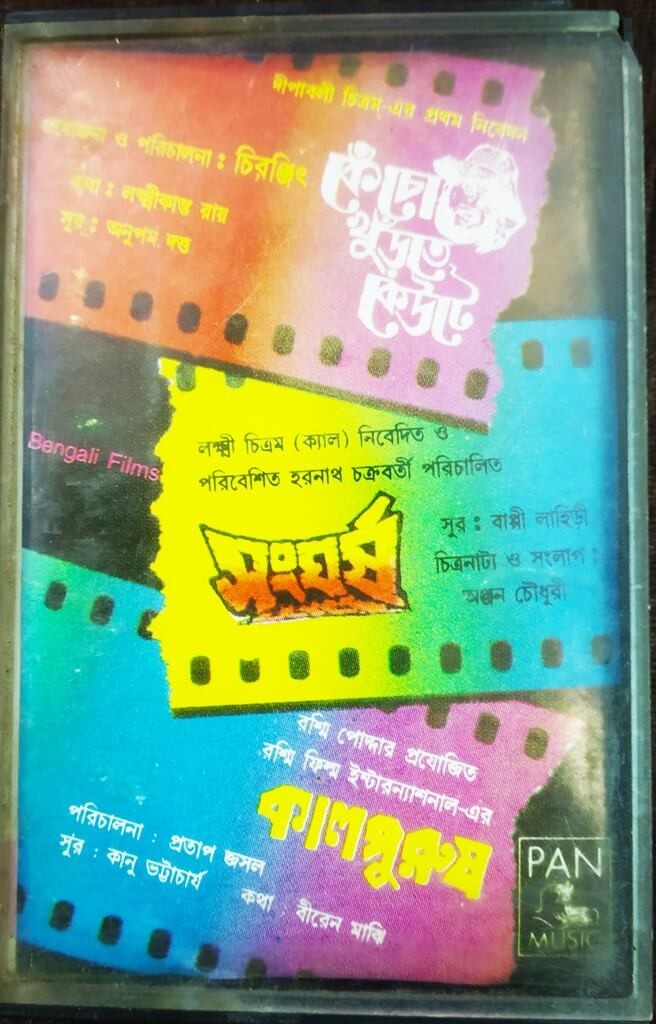 দীপাবলী চিত্রম-এর প্রথম নিবেদন
প্রযোজনা ও পরিচালনা : চিরঞ্জিৎ
কথা : লক্ষ্মীকান্ত রায়
সুর : অনুপম দত্ত
কেঁচো
খুঁড়তে
কেউটে
Bengali Films
লক্ষ্মী চিত্রম (ক্যাল) নিবেদিত ও
পরিবেশিত হরনাথ চক্রবর্তী পরিচালিত
সংঘর্ষ
সুর : বাপ্পী লাহিড়ী
চিত্রনাট্য ও সংলাপ :
অঞ্জন চৌধুরী
রশ্মি পোদ্দার প্রযোজিত
রশ্মি ফিল্ম ইন্টারন্যাশনাল-এর
কালপুরুষ
পরিচালনা : প্রতাপ জসল
সুর : কানু ভট্টাচার্য
কথা : বীরেন মাঝি
PAN
MUSIC